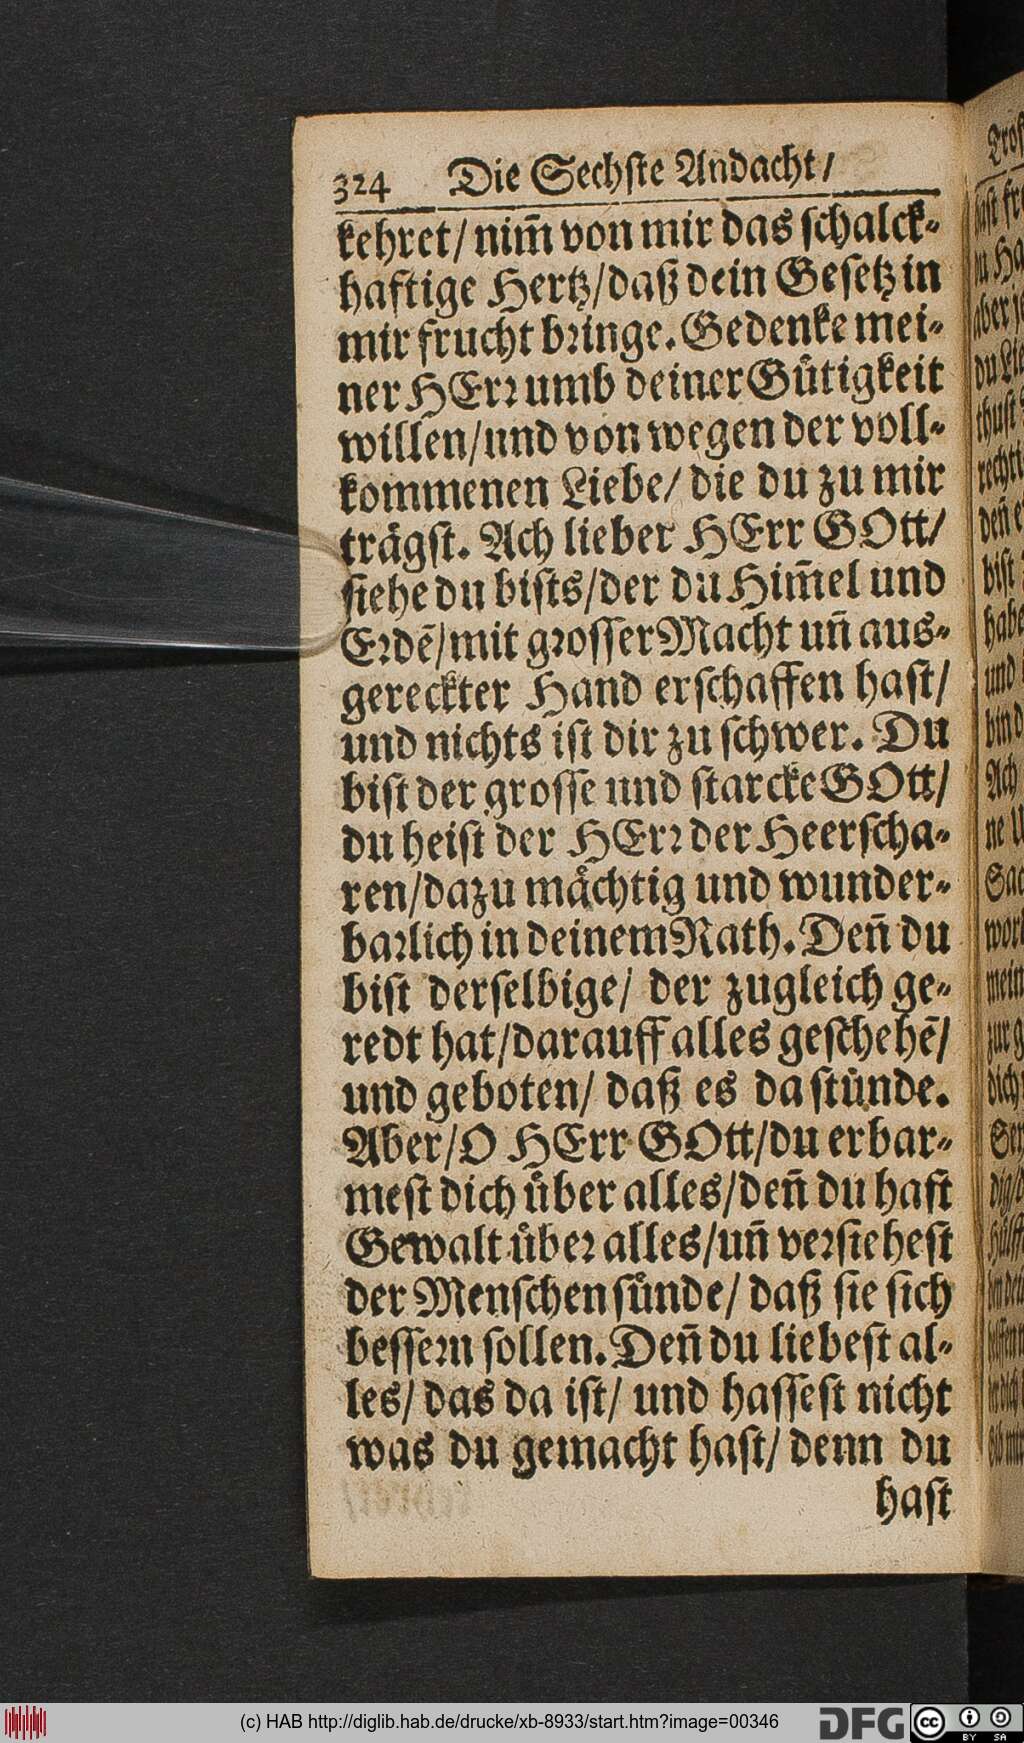 324 Die Sechste Andacht/
kehret/ nim̃ von mir das schalck⸗
haftige Hertz/daß dein Gesetz in
mir frucht bringe. Gedenke mei⸗
ner HErr umb deiner Gütigkeit
willen/und von wegen der voll⸗
kommenen Liebe/ die du zu mir
trägst. Ach lieber HErr GOtt/
siehe du bists/der du Him̃el und
Erdẽ/mit grosser Macht uñ aus⸗
gereckter Hand erschaffen hast/
und nichts ist dir zu schwer. Du
bist der grosse und starcke GOtt/
du heist der HErr der Heerscha⸗
ren/dazu mächtig und wunder⸗
barlich in deinem Rath. Deñ du
bist derselbige/ der zugleich ge⸗
redt hat/darauff alles geschehẽ/
und geboten/ daß es da stünde.
Aber/O HErr GOtt/du erbar⸗
mest dich über alles/deñ du hast
Gewalt über alles/uñ versiehest
der Menschen sünde/ daß sie sich
bessern sollen. Deñ du liebest al⸗
les/ das da ist/ und hassest nicht
was du gemacht hast/ denn du
hast
(c) HAB http://diglib.hab.de/drucke/xb-8933/start.htm?image=00346
DFG
cc
BY SA